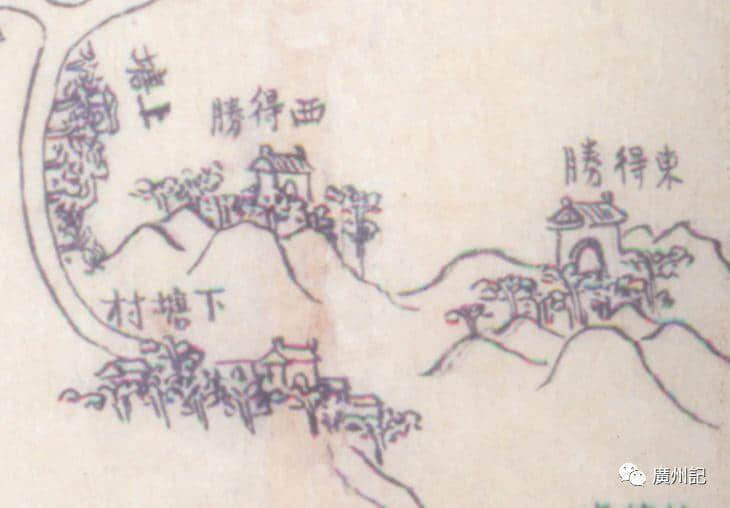 上塘
西得勝
東得勝
下塘村
廣州記